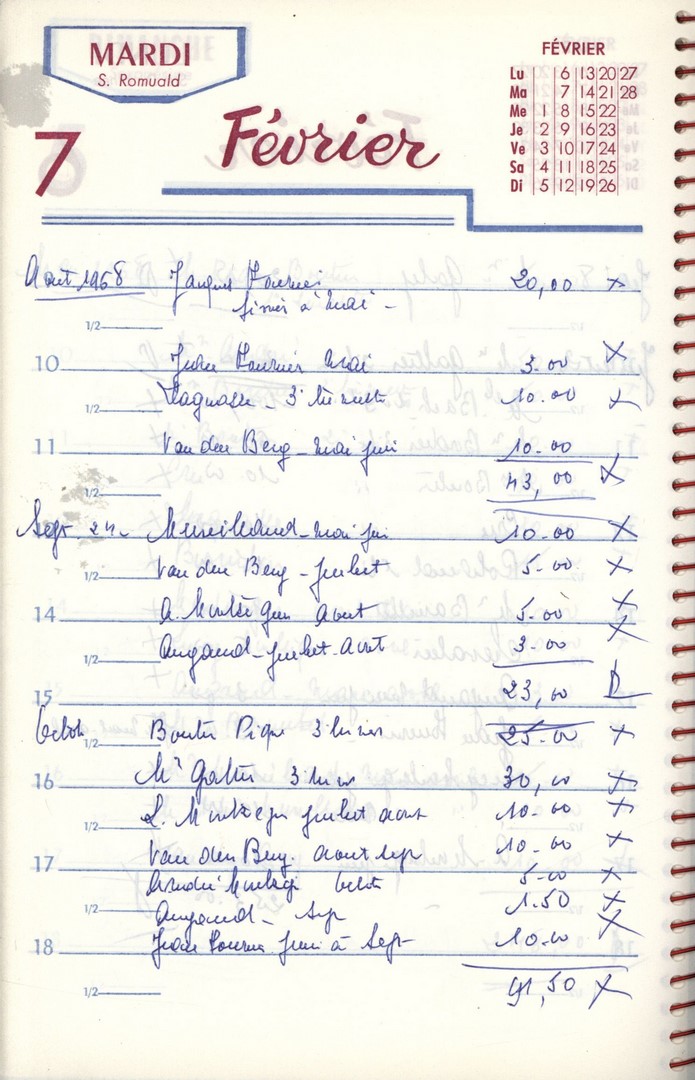 MARDI
S. Romuald
7
Février
FÉVRIER
Lu 6 13 20 27
Ma 7 14 21 28
Me 1 8 15 22
Je 2 9 16 23
Ve 3 10 17 24
Sa 4 11 18 25
Di 5 12 19 26
Aout 1968 Jacques 20,00 x
à Mai -
1/2
10 Jean Fournier Mai 3.00 x
1/2 - 3e 10.00 x
11 Van den Berg - Mai juin 10.00
1/2 43,00 x
Sept. 24 - Mai juin 10.00 x
1/2 Van den Berg - juillet 5.00 x
14 A. Aout 5.00 x
1/2 Augand - juillet - Aout 3.00 x
15 23,00
Octob 1/2 Pique 3 25.00 x
16 Galtier 3 30,00 x
1/2 L. juillet aout 10.00 x
17 Van den Berg. aout sept 10.00 x
André Octob 5.00 x
1/2 Augand - Sept 1.50 x
18 Jean Fournier juin à Sept 10.00 x
1/2 91,50 x